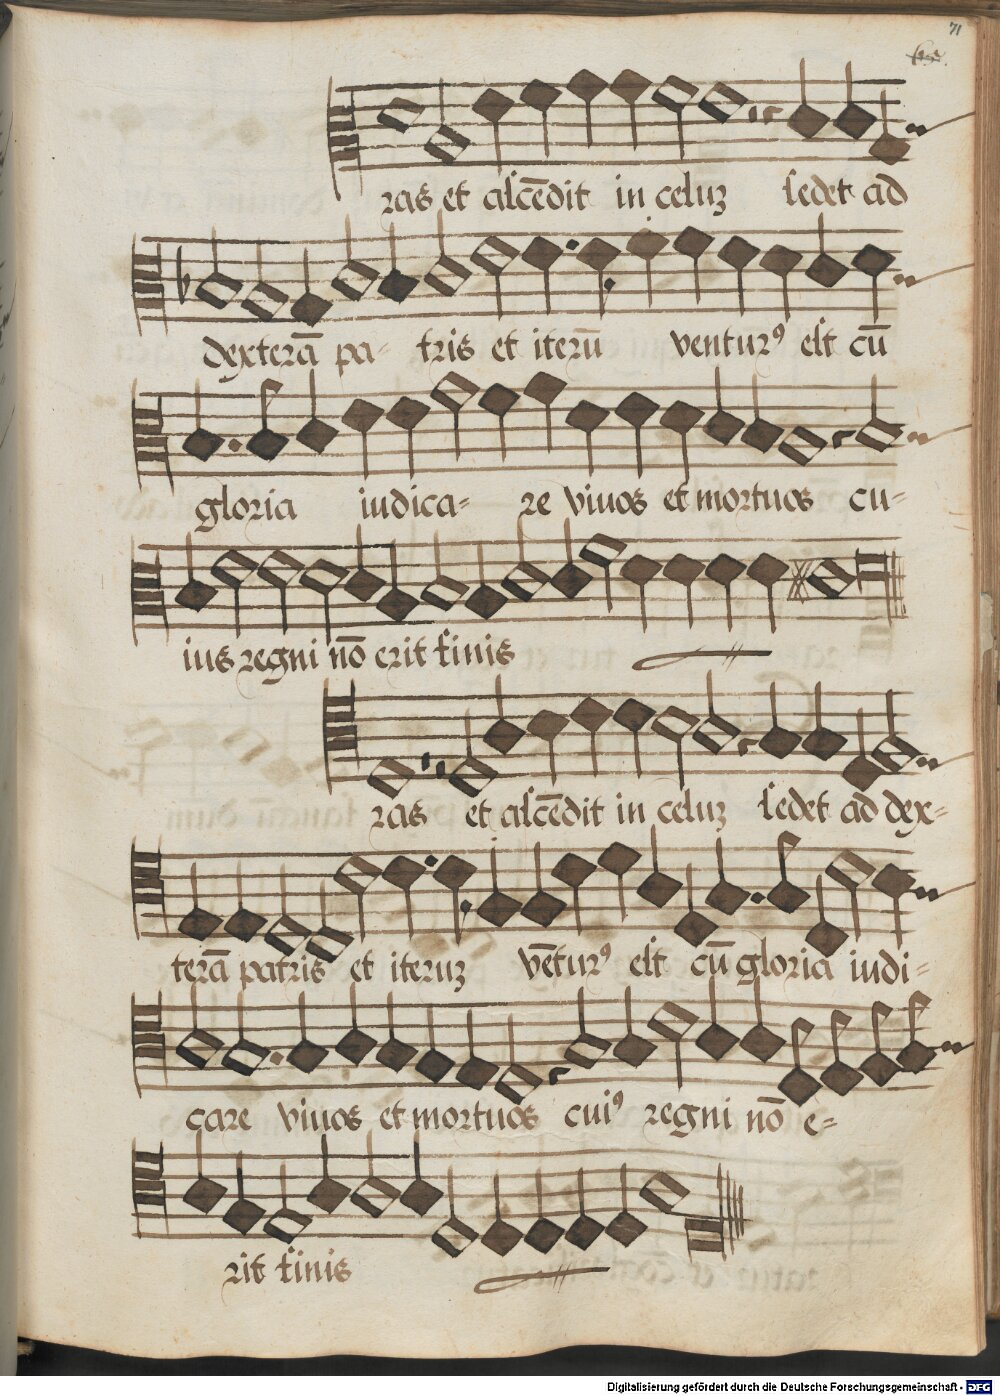 71
ras et ascēdit in celuʒ sedet ad
dexterā pa- tris et iterū venturꝰ est cū
gloria iudica- re viuos et mortuos cu-
ius regni nō erit finis
ras et ascēdit in celuʒ sedet ad dex-
terā patris et iteruʒ vēturꝰ est cū gloria iudi-
care viuos et mortuos cuiꝰ regni nō e-
rit finis
Digitalisierung gefördert durch die Deutsche Forschungsgemeinschaft - DFG